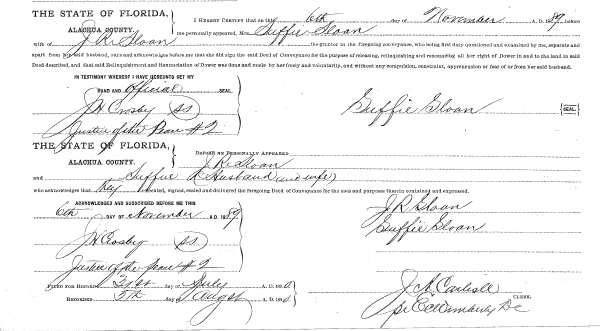 THE STATE OF FLORIDA,
ALACHUA COUNTY.
I HEREBY CERTIFY that on this 6th day of November A. D. 1889, before
me personally appeared, Mrs. Guffie Sloan
wife of J. R. Sloan the grantor in the foregoing conveyance, who being first duly questioned and examined by me, separate and
apart from her said husband, says and acknowledges before me that she did sign the said Deed of Conveyance for the purpose of releasing, relinquishing and renouncing all her right of Dower in and to the land in said
Deed described, and that said Relinquishment and Renunciation of Dower was done and made by her freely and voluntarily, and without any compulsion, constraint, apprehension or fear of or from her said husband.
IN TESTIMONY WHEREOF I HAVE HEREUNTO SET MY
HAND AND Official SEAL
J H Crosby SS
Justice of the Peace # 2
Guffie Sloan SEAL
THE STATE OF FLORIDA,
ALACHUA COUNTY.
BEFORE ME PERSONALLY APPEARED J. R. Sloan
and Guffie & Husband (and wife)
who acknowledges that they signed, sealed and delivered the foregoing Deed of Conveyance for the uses and purposes therein contained and expressed.
ACKNOWLEDGED AND SUBSCRIBED BEFORE ME THIS
6th DAY OF November A.D. 1889
J H Crosby SS
Justice of the peace # 2
J R Sloan
Guffie Sloan
FILED FOR RECORD 31st day of July A. D. 1890
RECORDED 5th day of Augst A. D. 1890
J A Carlisle CLERK.
pr E C Wimberly DC